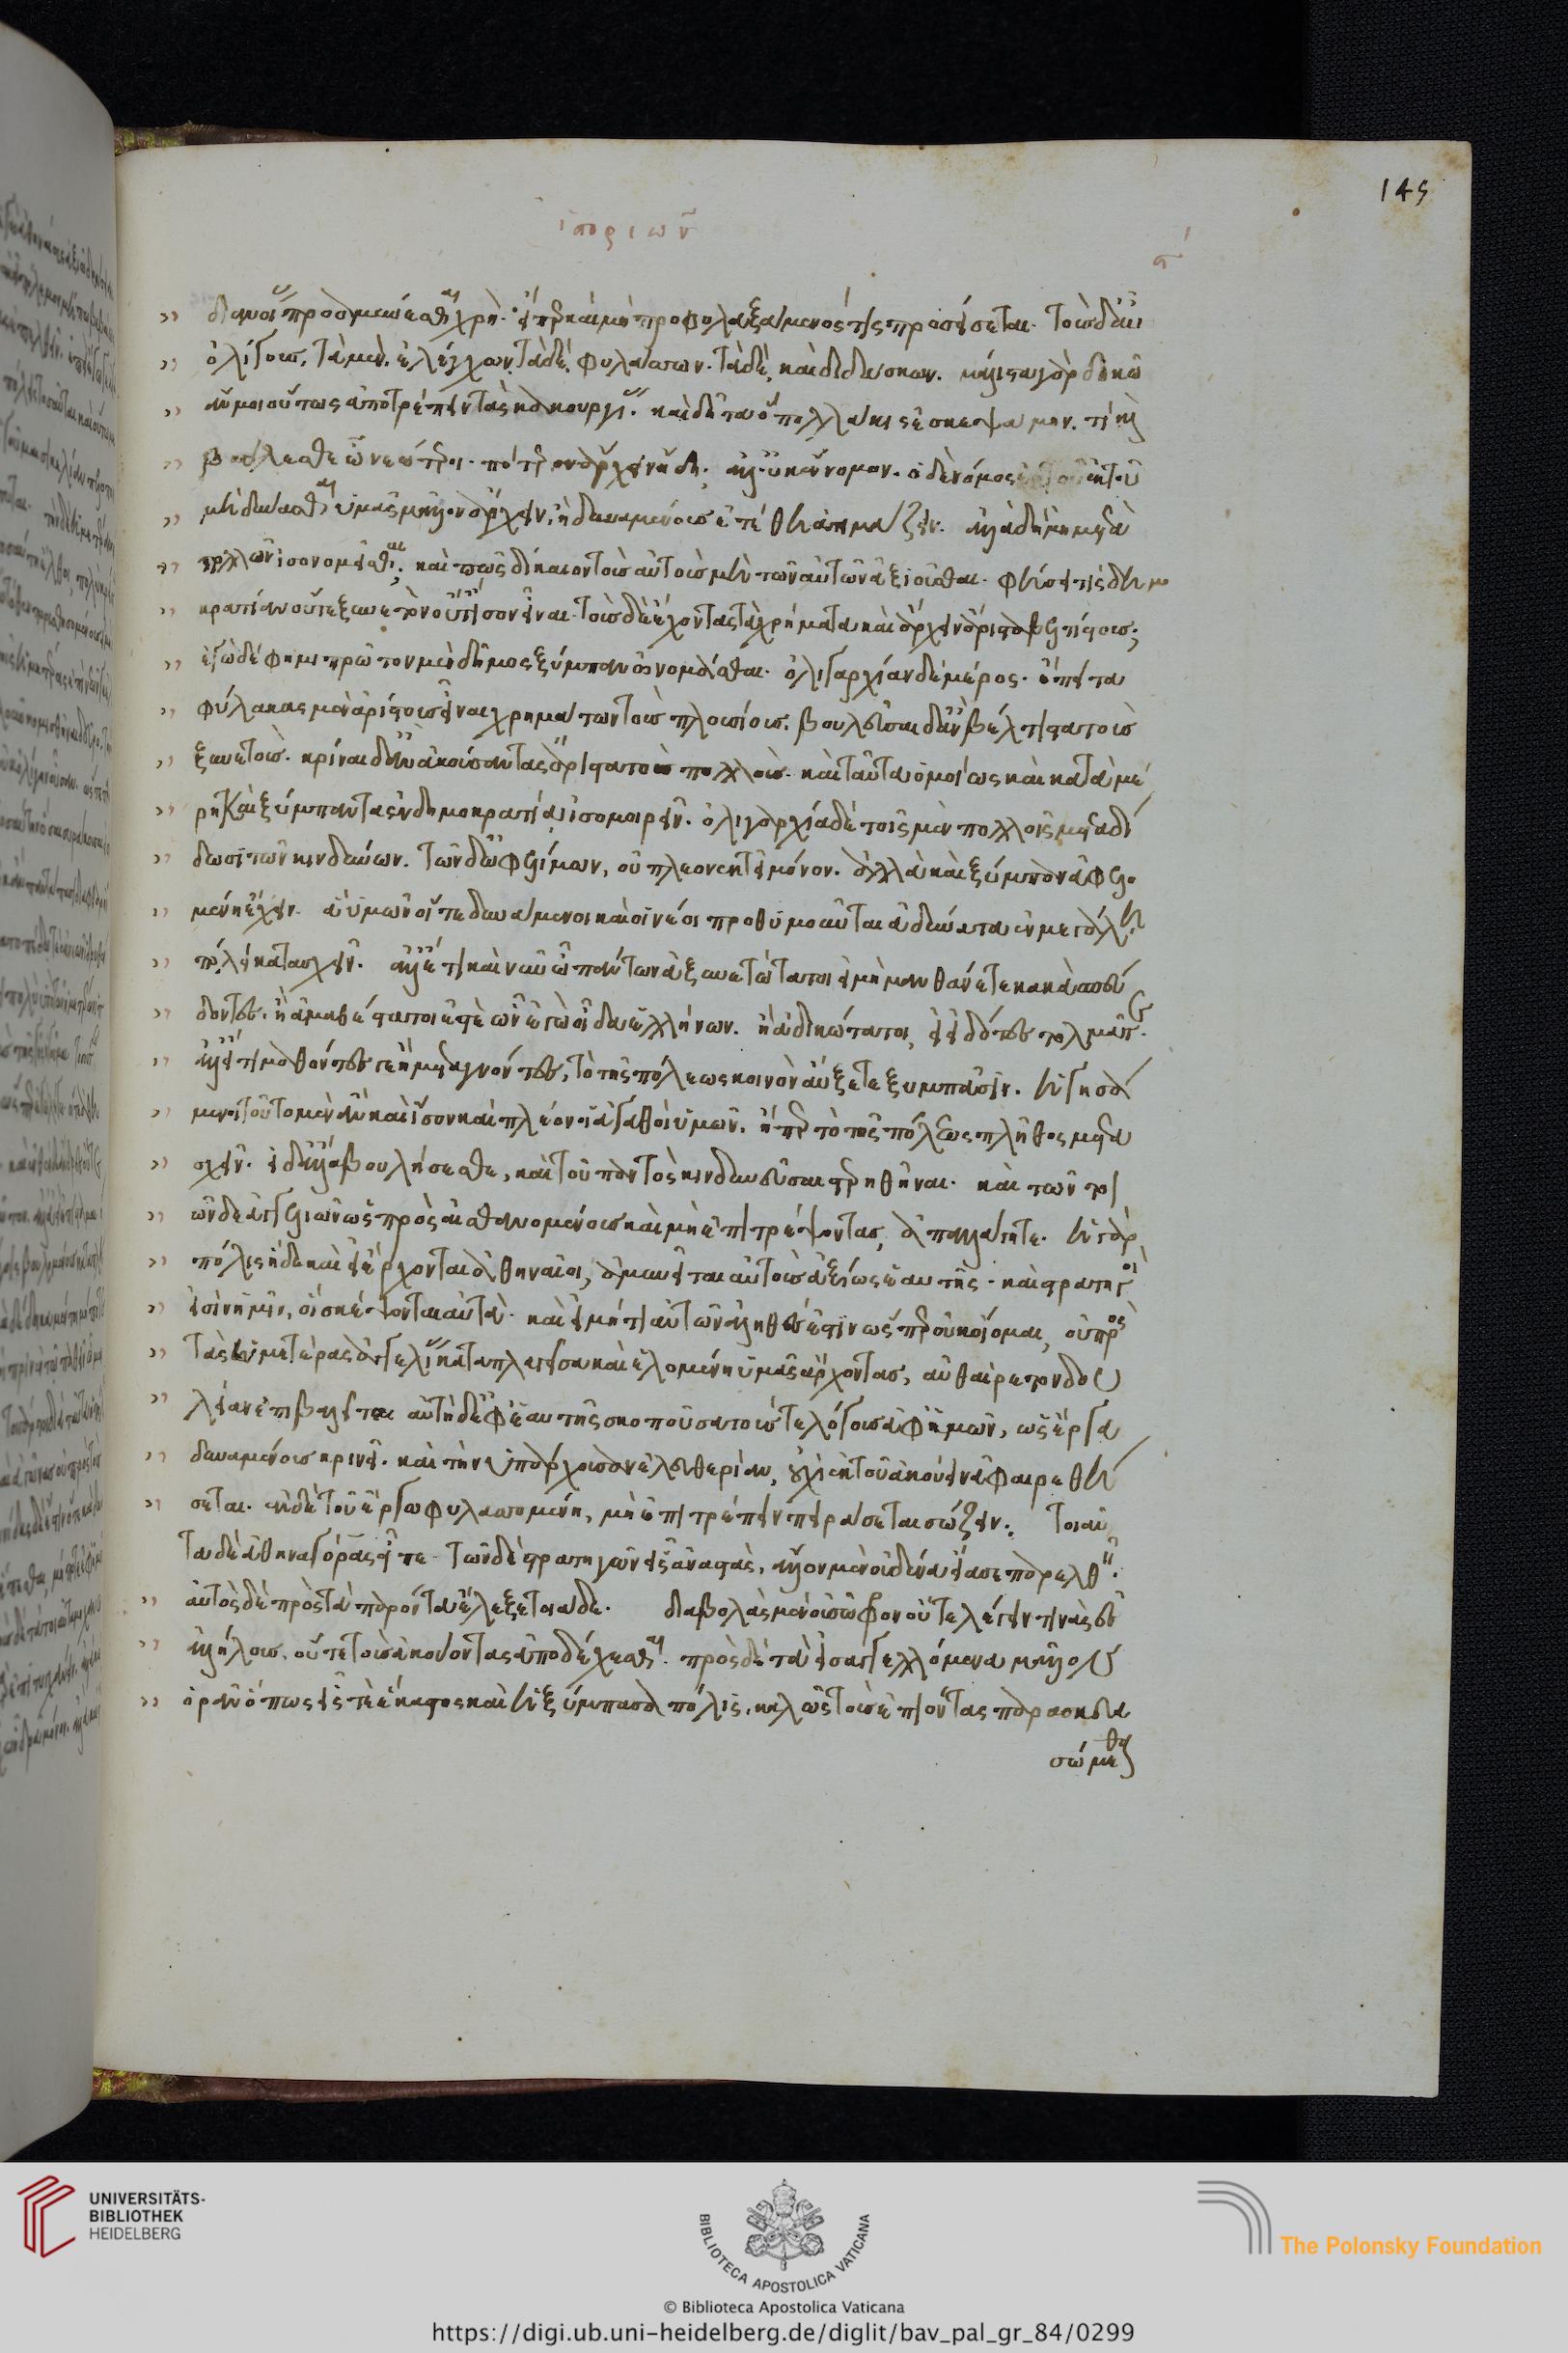 145
ἱστοριῶν
ϛ´
διανοίας προαμύνεσθαι χρή. εἴπερ καὶ μὴ προφυλαξάμενός τις προπείσεται. τοὺς δ' αὖ
ὀλίγους, τὰ μὲν, ἐλέγχων, τὰ δὲ, φυλάσσων. τὰ δὲ, καὶ διδάσκων. μάλιστα γὰρ δοκῶ
ἄν μοι οὕτως ἀποτρέπειν τῆς κακουργίας. καὶ δῆτα ὃ πολλάκις ἐσκεψάμην. τί καὶ
βούλεσθε ὦ νεώτεροι. πότερον ἄρχειν ἤδη; ἀλλ' οὐκ ἔννομον. ὁ δὲ νόμος ἐκ τοῦ
μὴ δύνασθαι ὑμᾶς μᾶλλον ἄρχειν, ἢ δυναμένους ἐτέθη ἀτιμάζειν. ἀλλὰ δὴ μὴ μετὰ
πολλῶν ἰσονομεῖσθαι; καὶ πῶς δίκαιον τοὺς αὐτοὺς μὴ τῶν αὐτῶν ἀξιοῦσθαι. φήσει τις δημο
κρατίαν οὔτε ξυνετὸν οὔτ' ἴσον εἶναι. τοὺς δὲ ἔχοντας τὰ χρήματα καὶ ἄρχειν ἄριστα βελτίστους;
ἐγὼ δέ φημι πρῶτον μὲν δῆμος ξύμπαν ὠνομάσθαι. ὀλιγαρχίαν δὲ μέρος. ἔπειτα
φύλακας μὲν ἀρίστους εἶναι χρημάτων τοὺς πλουσίους. βουλεῦσαι δ' ἂν βέλτιστα τοὺς
ξυνετούς. κρῖναι δ' ἂν ἀκούσαντας ἄριστα τοὺς πολλούς. καὶ ταῦτα ὁμοίως καὶ κατὰ μέ
ρη καὶ ξύμπαντα ἐν δημοκρατίᾳ ἰσομοιρεῖν. ὀλιγαρχία δὲ τοῖς μὲν πολλοῖς μεταδί
δωσι τῶν κινδύνων. τῶν δ' ὠφελίμων, οὐ πλεονεκτεῖ μόνον. ἀλλὰ καὶ ξύμπαν ἀφελο
μένη ἔχει. ἃ ὑμῶν οἵ τε δυνάμενοι καὶ οἱ νέοι προθυμοῦνται ἀδύνατα ἐν μεγάλῃ
πόλει κατασχεῖν. ἀλλ' ἔτι καὶ νῦν ὦ πάντων ἀξυνετώτατοι εἰ μὴ μανθάνετε κακὰ σπεύ
δοντες. ἢ ἀμαθέστατοί ἐστε ὧν ἐγὼ οἶδα ἑλλήνων. ἢ ἀδικώτατοι, εἰ εἰδότες τολμᾶτε.
ἀλλ' ἤτοι μαθόντες γε ἢ μεταγνόντες, τὸ τῆς πόλεως κοινὸν αὔξετε ξυμπᾶσιν. ἡγησά
μενοι τοῦτο μὲν ἂν καὶ ἴσον καὶ πλέον οἱ ἀγαθοὶ ὑμῶν. ἤπερ τὸ τῆς πόλεως πλῆθος μετα
σχεῖν. εἰ δ' ἄλλα βουλήσεσθε, καὶ τοῦ παντὸς κινδυνεῦσαι στερηθῆναι. καὶ τῶν τοι
ῶνδε ἀγγελιῶν ὡς πρὸς αἰσθανομένους καὶ μὴ ἐπιτρέψοντας, ἀπαλλάγητε. ἡ γὰρ
πόλις ἥδε καὶ εἰ ἔρχονται ἀθηναῖοι, ἀμυνεῖται αὐτοὺς ἀξίως ἑαυτῆς. καὶ στρατηγοί
εἰσὶν ἡμῖν, οἳ σκέψονται αὐτά. καὶ εἰ μή τι αὐτῶν ἀληθές ἐστιν ὥσπερ οὐκ οἴομαι, οὐ πρὸς
τὰς ὑμετέρας ἀγγελίας καταπλαγεῖσα καὶ ἑλομένη ὑμᾶς ἄρχοντας, αὐθαίρετον δου
λείαν ἐπιβαλεῖται αὐτὴ δ' ἐφ' ἑαυτῆς σκοποῦσα τούς τε λόγους ἀφ' ὑμῶν, ὡς ἔργα
δυναμένους κρινεῖ. καὶ τὴν ὑπάρχουσαν ἐλευθερίαν, οὐχὶ ἐκ τοῦ ἀκούειν ἀφαιρεθή
σεται. ἐκ δὲ τοῦ ἔργῳ φυλασσομένη, μὴ ἐπιτρέπειν πειράσεται σώζειν. τοιαῦ
τα δὲ ἀθηναγόρας εἶπε. τῶν δὲ στρατηγῶν εἷς ἀναστὰς, ἄλλον μὲν οὐδένα εἴασε παρελθεῖν.
αὐτὸς δὲ πρὸς τὰ παρόντα ἔλεξε τοιάδε. διαβολὰς μὲν οὐ σῶφρον οὔτε λέγειν τινὰς ἐς
ἀλλήλους, οὔτε τοὺς ἀκούοντας ἀποδέχεσθαι. πρὸς δὲ τὰ ἐσαγγελλόμενα μᾶλλον
ὁρᾶν ὅπως εἷς τε ἕκαστος καὶ ἡ ξύμπασα πόλις, καλῶς τοὺς ἐπιόντας παρασκευα
σώμεθα
UNIVERSITÄTS-
BIBLIOTHEK
HEIDELBERG
BIBLIOTECA APOSTOLICA VATICANA
The Polonsky Foundation
© Biblioteca Apostolica Vaticana
https://digi.ub.uni-heidelberg.de/diglit/bav_pal_gr_84/0299